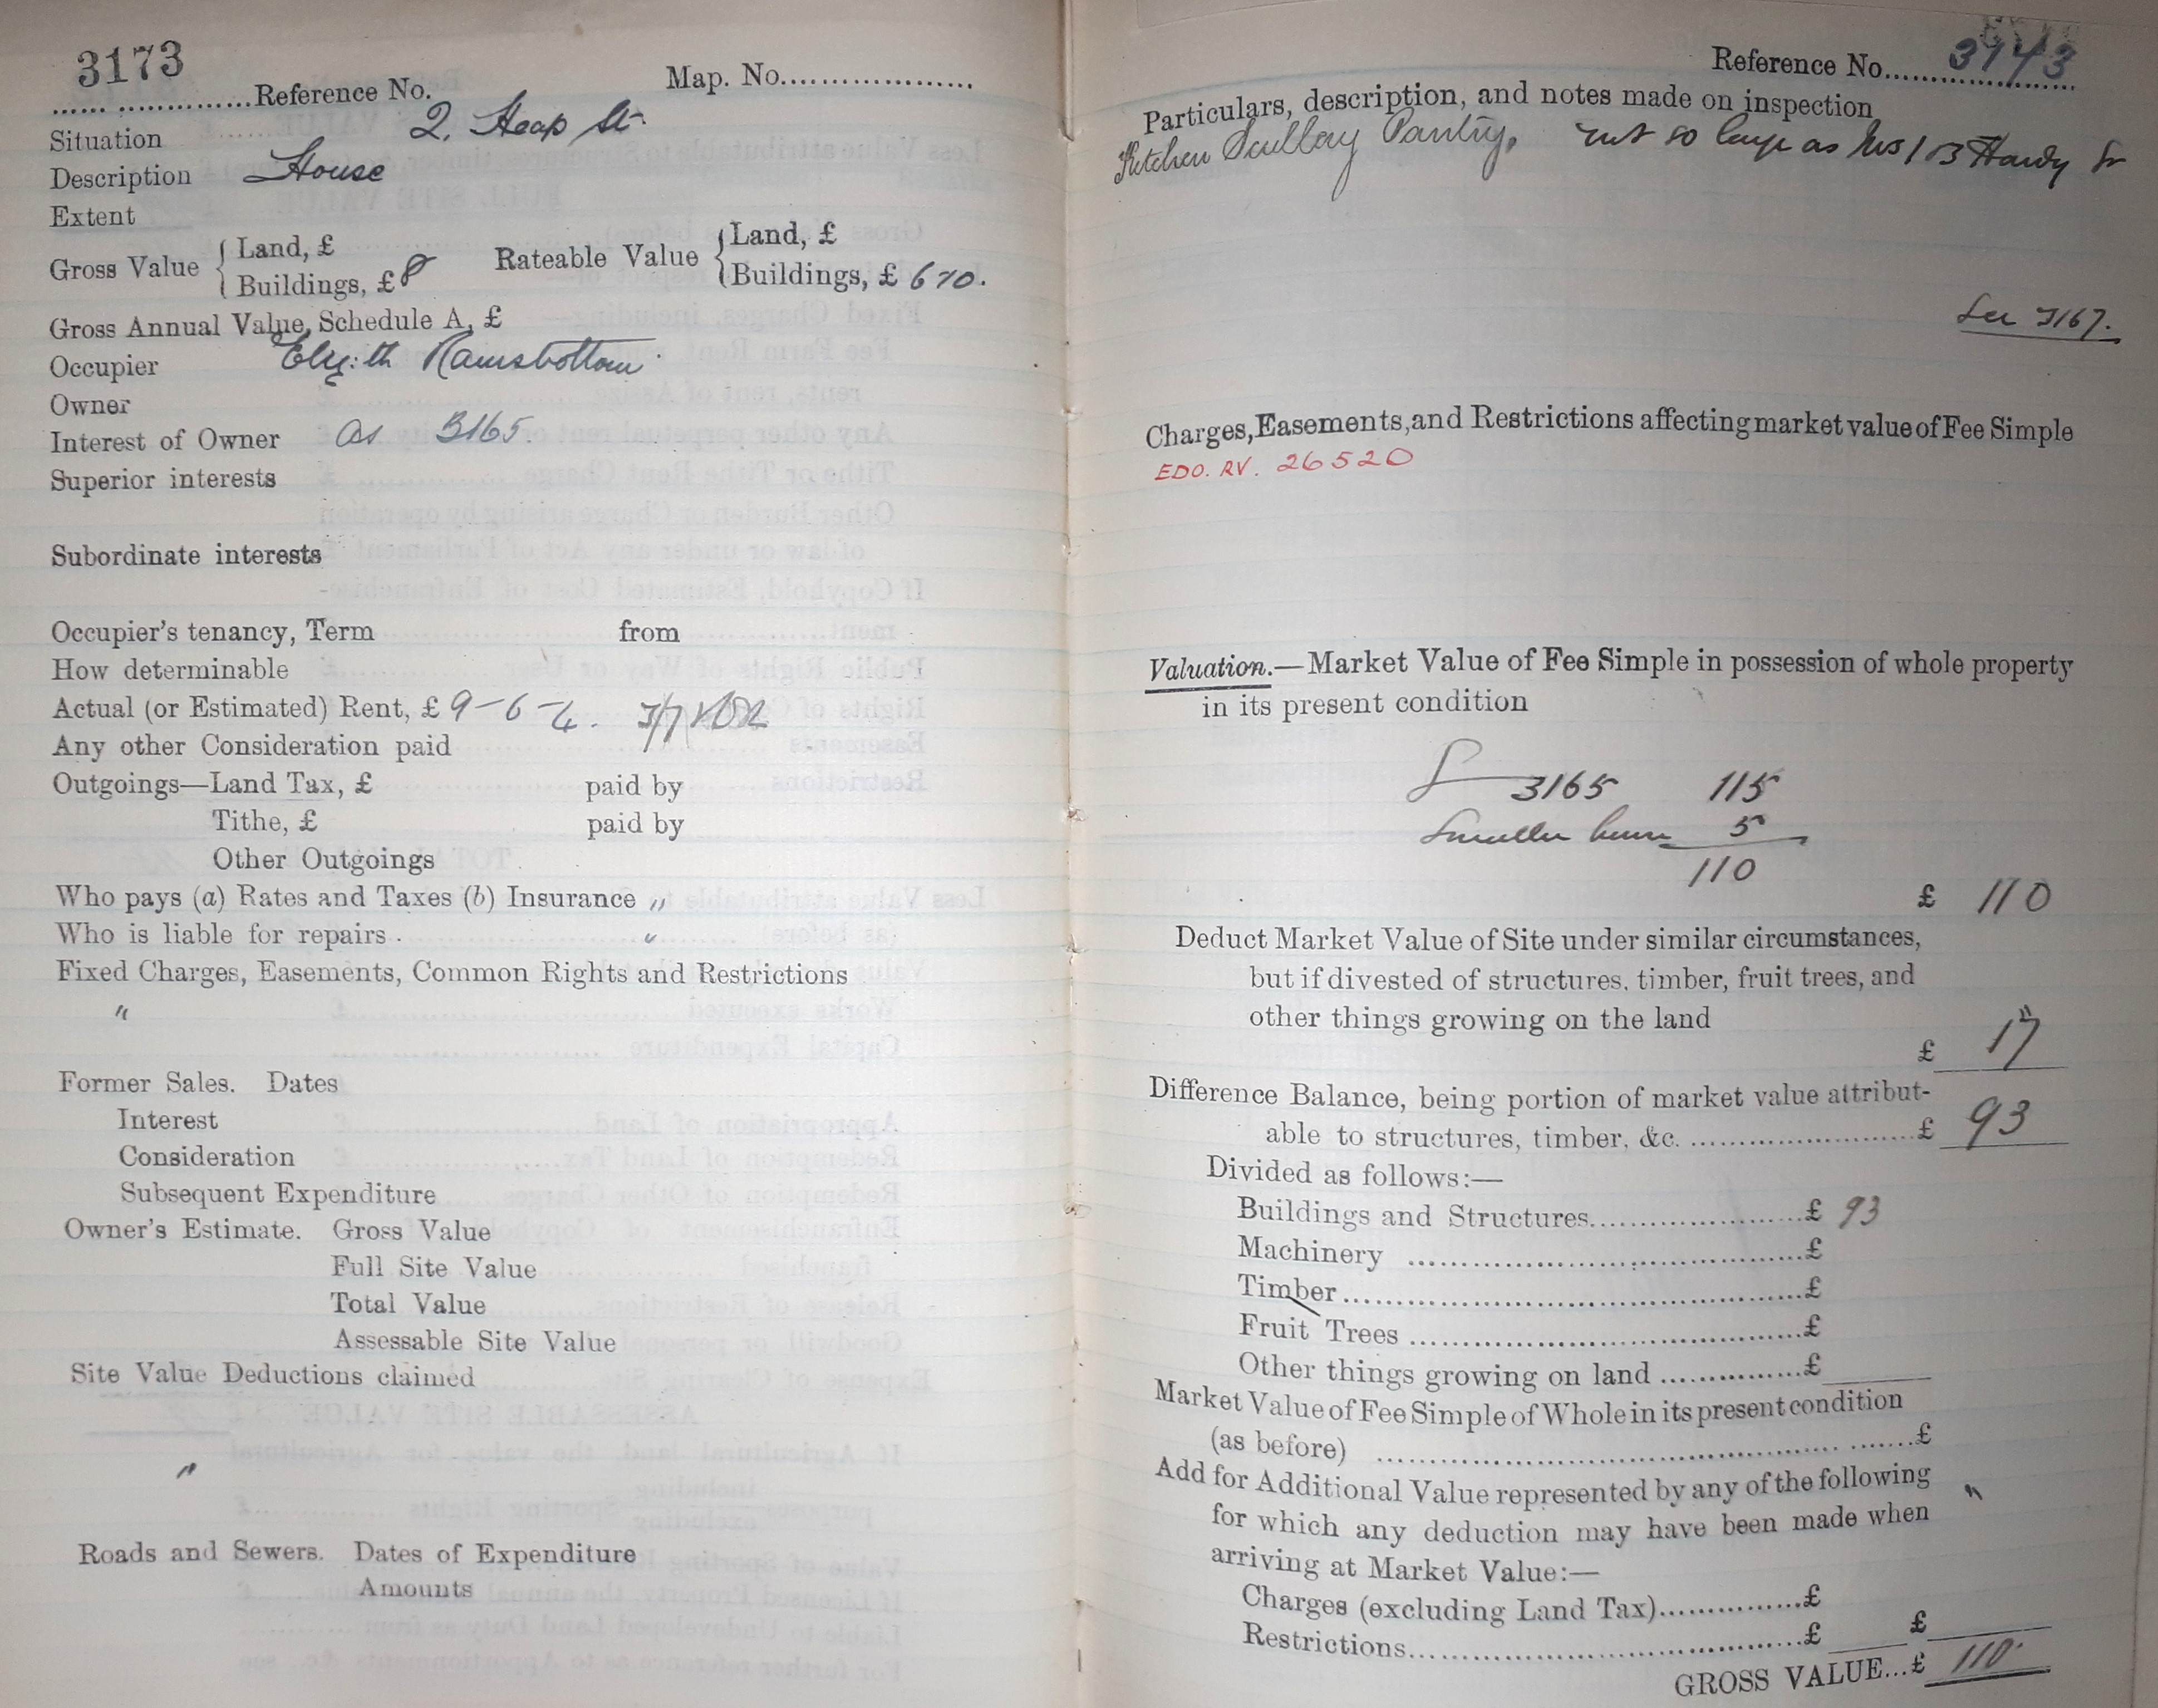 3173
.....................Reference No.
Map. No....................
Situation 2. Heap St.
Description House
Extent
Gross Value { Land, £
Buildings, £ 8
Rateable Value { Land, £
Buildings, £ 6 10.
Gross Annual Value, Schedule A, £
Occupier Eliz:th Ramsbottom
Owner
Interest of Owner as 3165.
Superior interests
Subordinate interests
Occupier's tenancy, Term from
How determinable
Actual (or Estimated) Rent, £ 9-6-4. 3/7
Any other Consideration paid
Outgoings—Land Tax, £ paid by
Tithe, £ paid by
Other Outgoings
Who pays (a) Rates and Taxes (b) Insurance "
Who is liable for repairs "
Fixed Charges, Easements, Common Rights and Restrictions
"
Former Sales. Dates
Interest
Consideration
Subsequent Expenditure
Owner's Estimate. Gross Value
Full Site Value
Total Value
Assessable Site Value
Site Value Deductions claimed
"
Roads and Sewers. Dates of Expenditure
Amounts
Reference No.
Particulars, description, and notes made on inspection
Kitchen Scullery Pantry, not so large as Nos 1 & 3 Hardy St
See 3167.
Charges, Easements, and Restrictions affecting market value of Fee Simple
EDO. RV. 26520
Valuation.—Market Value of Fee Simple in possession of whole property
in its present condition
3165 115
Smaller house 5
110
£ 110
Deduct Market Value of Site under similar circumstances,
but if divested of structures, timber, fruit trees, and
other things growing on the land
£ 17
Difference Balance, being portion of market value attribut-
able to structures, timber, &c. ..........................£ 93
Divided as follows:—
Buildings and Structures........................£ 93
Machinery ..........................................£
Timber..................................................£
Fruit Trees ..........................................£
Other things growing on land ...............£
Market Value of Fee Simple of Whole in its present condition
(as before) ..........................................................£
Add for Additional Value represented by any of the following "
for which any deduction may have been made when
arriving at Market Value:—
Charges (excluding Land Tax)................£
Restrictions..........................................£ £
GROSS VALUE...£ 110